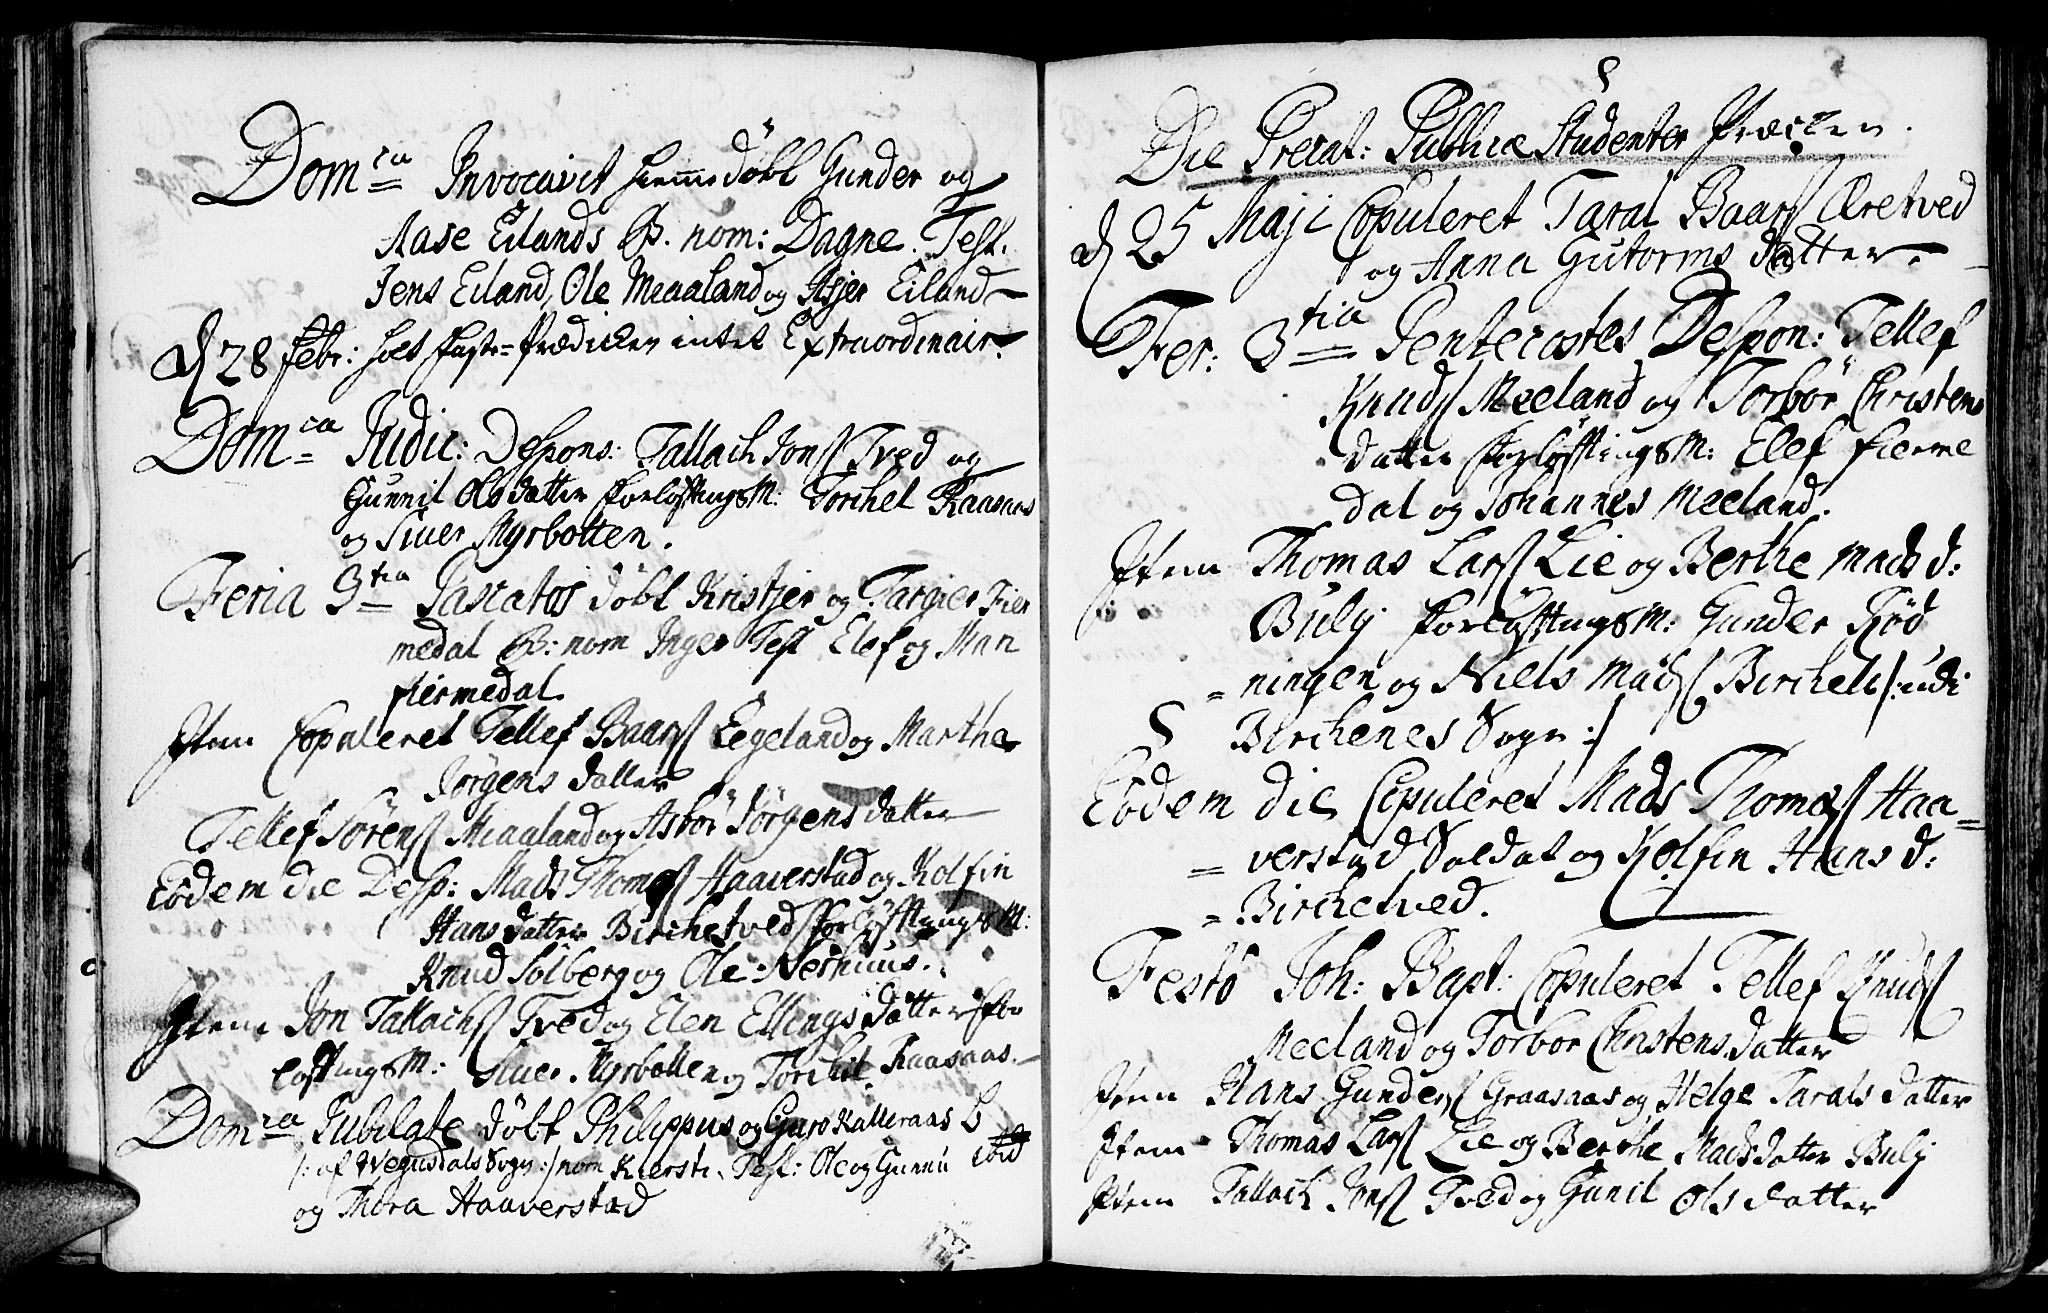 Dom:ca Invocavit hiemmedøbt Gunder og
Aase Eilands B. nom: Dagne. Test.
Jens Eiland, Ole Meaaland og Asjer Eiland
d 28 Febr: holt Faste-Prædicken intet Extraordinair.
Dom:ca Judic: Despons: Tallach Jons: Tved og
Gunnil Olsdatter Forløftings M: Torchel Raasaas
og Siver Myrbotten.
Feria 3tia Pascatos døbt Kristjer og Targier Fier
medal B: nom Inger Test Elef og Man
fiermedal.
Item Copuleret Tellef Baars: Egeland og Marthe
Jørgens datter
Tellef Sørens: Meaaland og Asbor Jørgens datter
Eodem die Desp: Mads Thomes: Haaverstad og Kolfin
Hans datter Birchetved Forløftnings M:
Knud Solberg og Ole Nerhuus.
Item Jon Tallachs: Tved og Elen Ellings datter For
løftings M: Siver Myrbotten og Torchil Raasaas.
Dom:ca Jubilate døbt Philippus og Guro Kalleraas B
/: af Wegusdals Sogn :/ nom Kiersti. Test: Ole og Gunni ibid
og Thora Haaverstad
Die Precat: Publicæ Studenter Præcken.
d 25 Maji Copuleret Taral Baars: Æretved
og Anna Gutorms datter
Fer: 3tia Pentecostes Despon: Tellef
Knuds: Meeland og Torbor Christens
datter Forløftings M: Elef fierme
dal og Johannes Meeland.
Item Thomas Lars: Lie og Berthe Mads d:
Buly Forløftings M: Gunder Rød
=ningen og Niels Mads: Bircheli /: udi
Birchenes Sogn :/
Eodem die Copuleret Mads Thomes: Haa=
=verstad Soldat og Kolfin Hans d:
=Birchetved.
Festo Joh: Bapt: Copuleret Tellef Knuds:
Meeland og Torbor Christens datter
Item Hans Gunders: Graasaas og Helge Tarals datter
Item Thomas Lars: Lie og Berthe Mads datter Buly
Item Tallach Jons: Tved og Gunil Ols datter